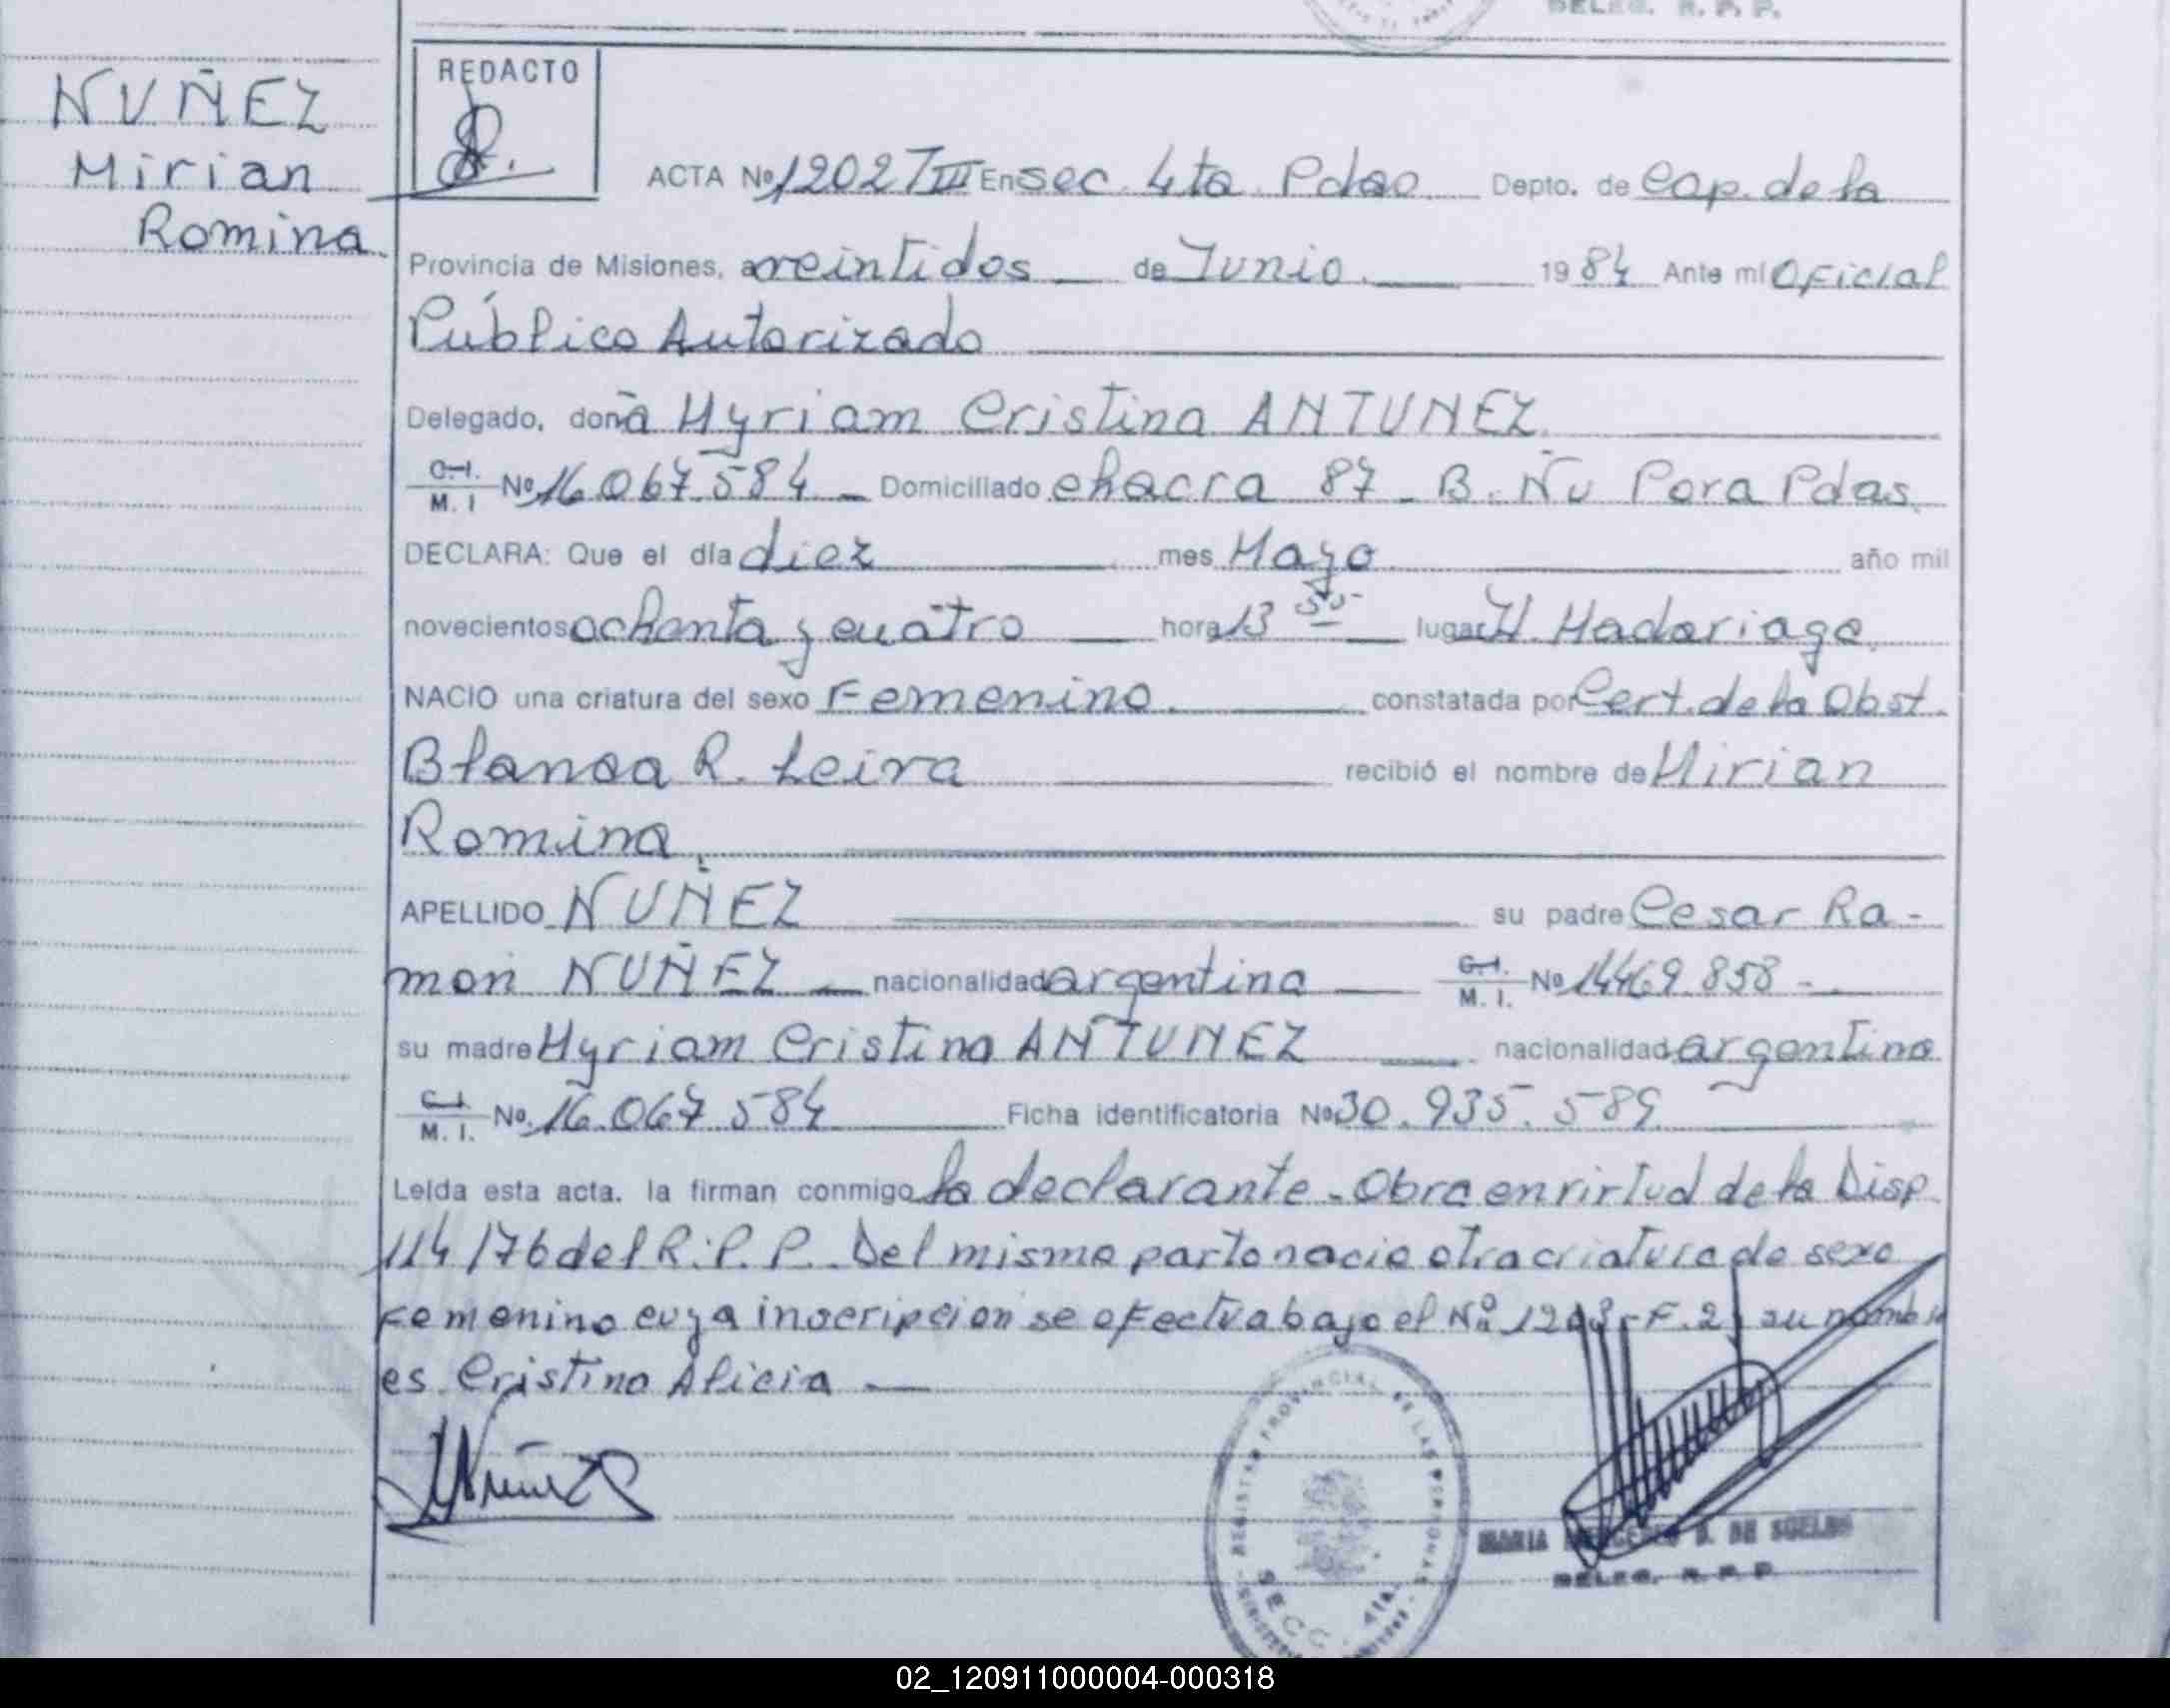 DELEG. R. P. P.
NUÑEZ
Mirian
Romina
REDACTO
ACTA Nº 1202 T III En sec. 4ta. Pdas. Depto. de Cap. de la
Provincia de Misiones, a veintidos de Junio. 1984 Ante mi Oficial
Público Autorizado
Delegado, doña Myriam Cristina ANTUNEZ
C.I. M. I Nº 16.067.584 - Domiciliado chacra 87 - B. Ñu Pora Pdas.
DECLARA: Que el día diez mes Mayo año mil
novecientos ochenta y cuatro hora 13 50 lugar H. Madariaga.
NACIO una criatura del sexo Femenino. constatada por Cert. de la Obst.
Blanca R. Leiva recibió el nombre de Mirian
Romina.
APELLIDO NUÑEZ su padre Cesar Ra-
mon NUÑEZ nacionalidad argentina C.I. M. I. Nº 14469.858 -
su madre Myriam Cristina ANTUNEZ nacionalidad argentina
C.I. M. I. Nº 16.067.584 Ficha identificatoria Nº 30.935.589
Leída esta acta, la firman conmigo la declarante - Obra en virtud de la Disp.
114/76 del R.P.P. Del mismo parto nacio otra criatura de sexo
Femenino cuya inscripcion se efectua bajo el Nº 1203 - F. 2 y su nombre
es Cristina Alicia
REGISTRO PROVINCIAL DE LAS PERSONAS
SECC. 4ta.
MARIA DE SOELBO
DELEG. R. P. P.
02_120911000004-000318